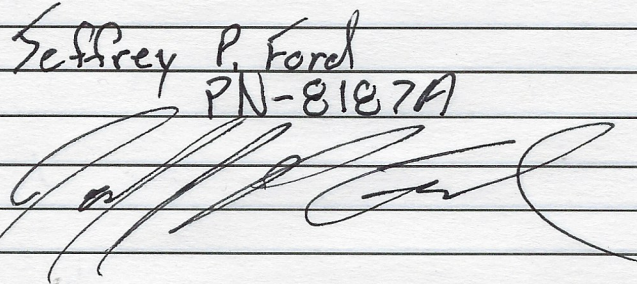 Jeffrey P. Ford
PN-8187A